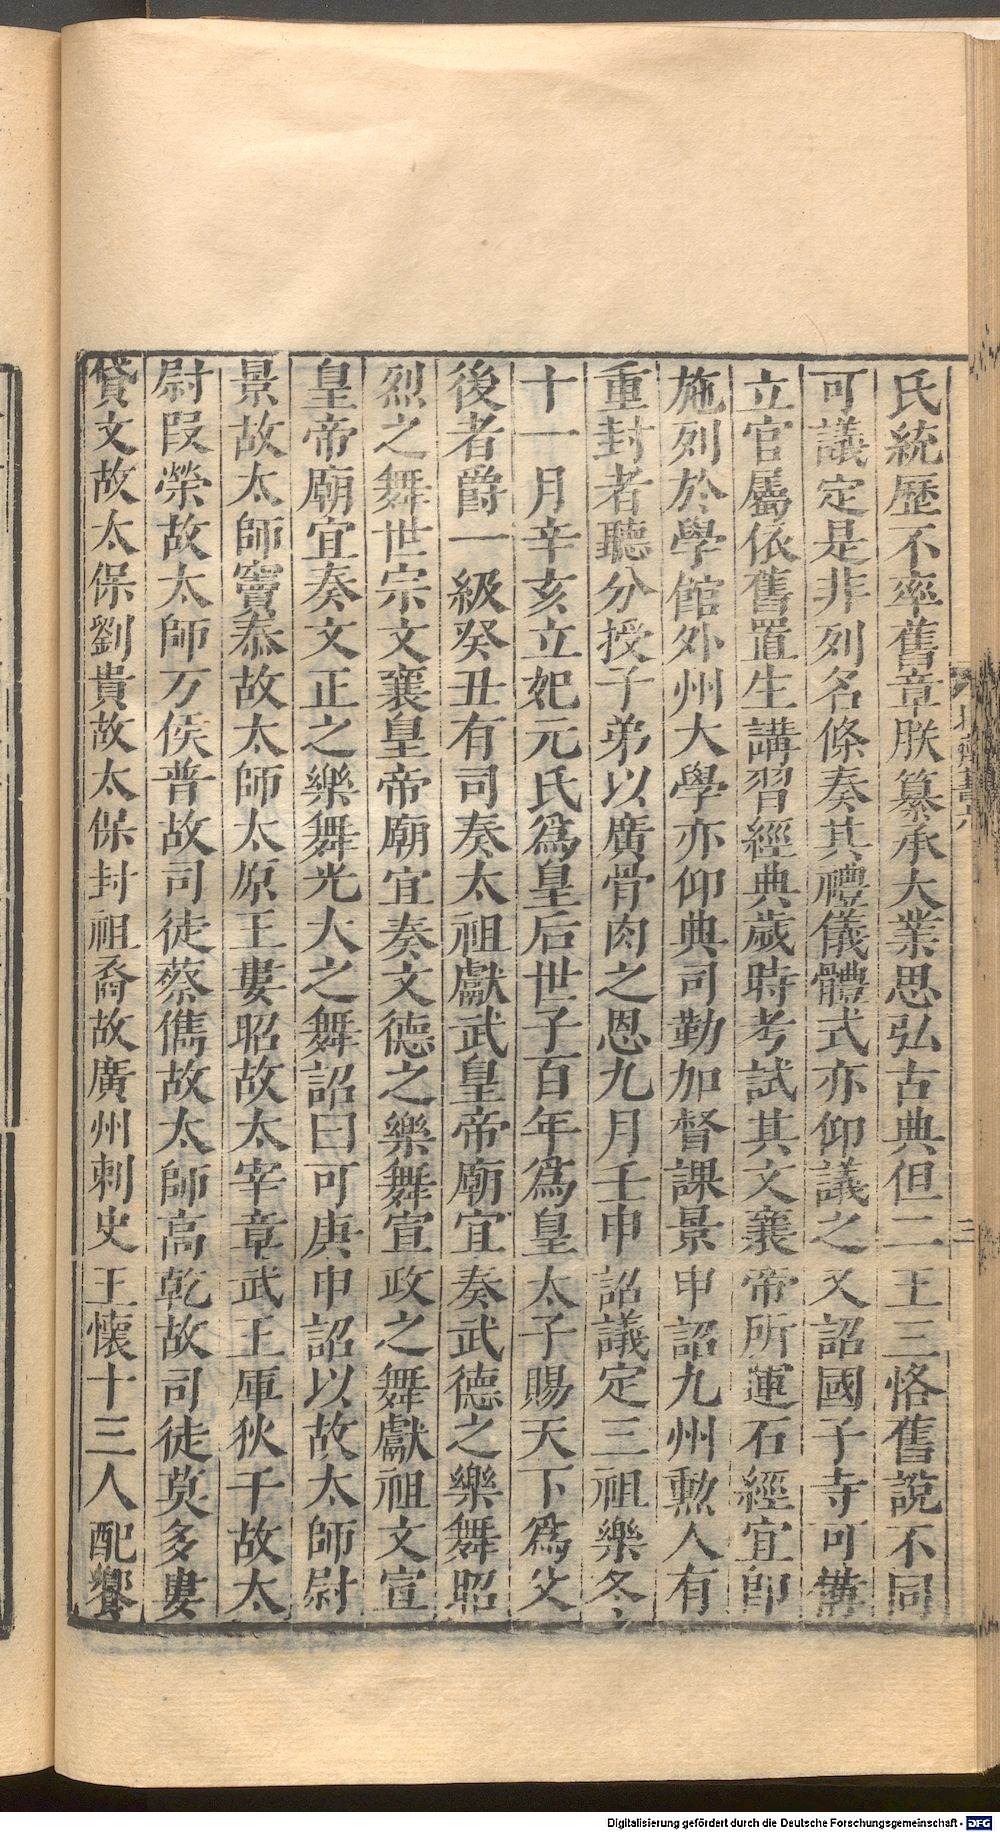 氏統歷不率舊章朕纂承大業思弘古典但二王三恪舊說不同
可議定是非列名條奏其禮儀體式亦仰議之又詔國子寺可備
立官屬依舊置生講習經典歲時考試其文襄帝所運石經宜即
施列於學館外州大學亦仰典司勤加督課景申詔九州勲人有
重封者聽分授子弟以廣骨肉之恩九月壬申詔議定三祖樂冬
十一月辛亥立妃元氏爲皇后世子百年爲皇太子賜天下爲父
後者爵一級癸丑有司奏太祖獻武皇帝廟宜奏武德之樂舞昭
烈之舞世宗文襄皇帝廟宜奏文德之樂舞宣政之舞獻祖文宣
皇帝廟宜奏文正之樂舞光大之舞詔曰可庚申詔以故太師尉
景故太師竇泰故太師太原王婁昭故太宰章武王庫狄干故太
尉叚榮故太師万俟普故司徒蔡儁故太師高乾故司徒莫多婁
貸文故太保劉貴故太保封祖裔故廣州刺史王懷十三人配饗
三
Digitalisierung gefördert durch die Deutsche Forschungsgemeinschaft - DFG